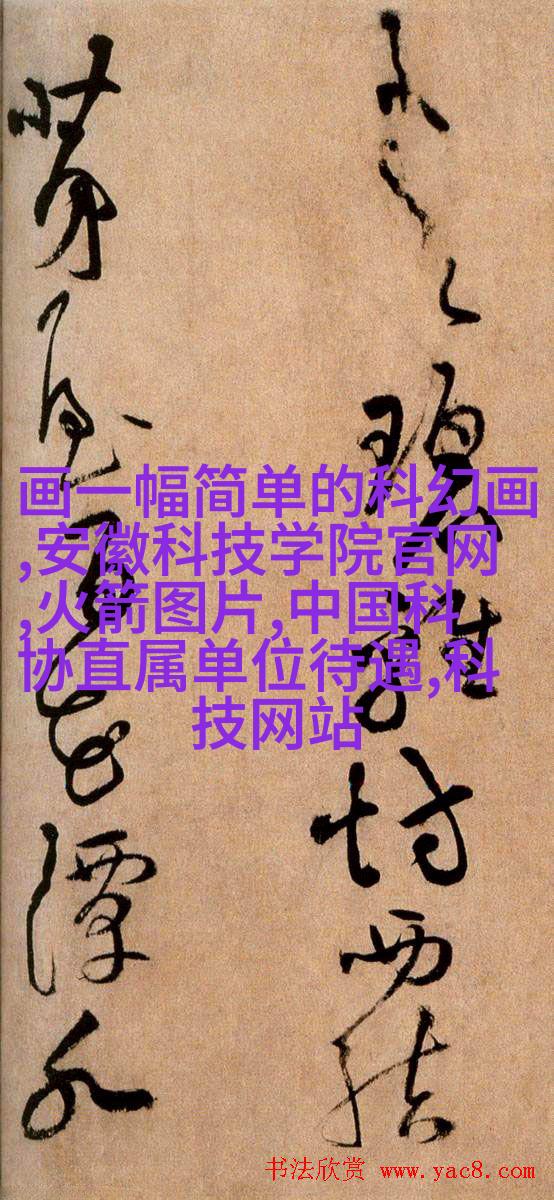 碧雞坊西結
茅屋百花潭水
画一幅简单的科幻画
,安徽科技学院官网
,火箭图片,中国科
协直属单位待遇,科
技网站
书法欣赏 www.yac8.com